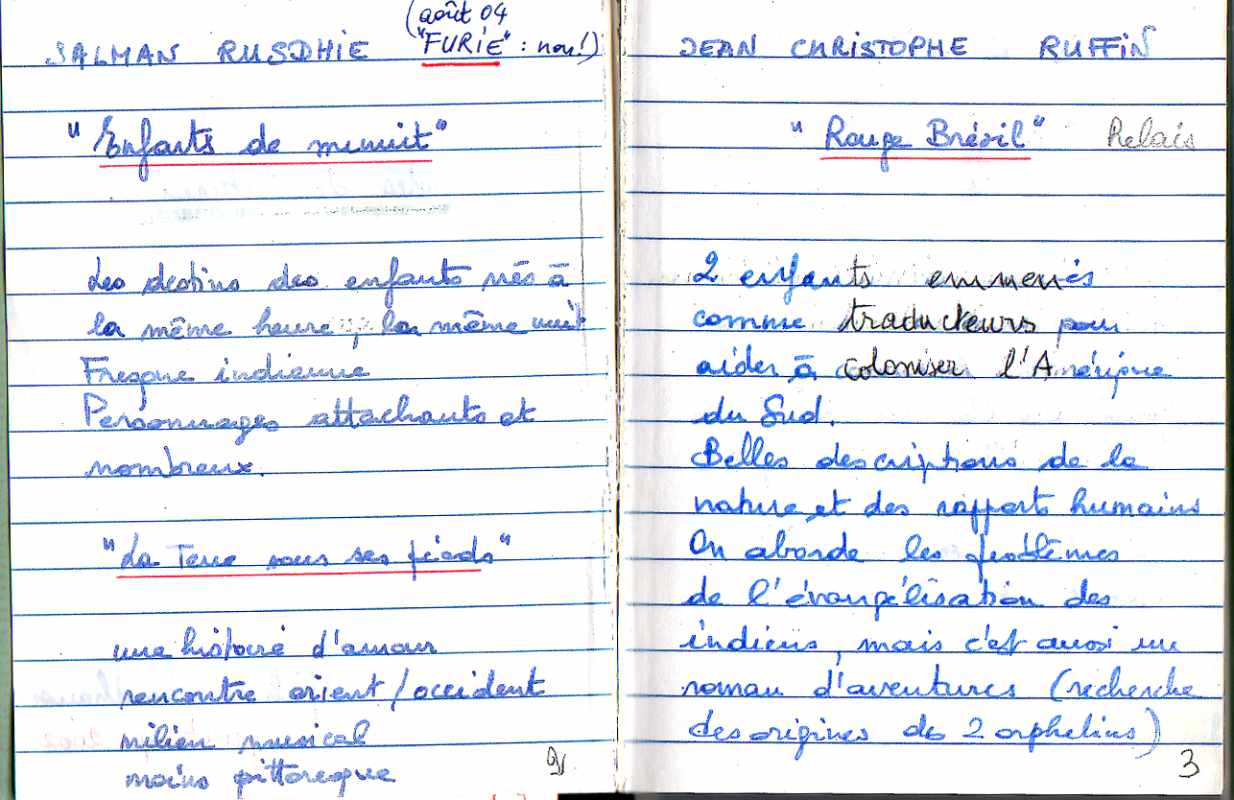 (août 04
SALMAN RUSDHIE "FURIE" : non!)
"Enfants de minuit"
Les destins des enfants nés à
la même heure, la même nuit
Fresque indienne
Personnages attachants et
nombreux.
"La Terre sous ses pieds"
une histoire d'amour
rencontre orient/occident
milieu musical
moins pittoresque
2
JEAN CHRISTOPHE RUFFIN
"Rouge Brésil" Relais
2 enfants emmenés
comme traducteurs pour
aider à coloniser l'Amérique
du Sud.
Belles descriptions de la
nature et des rapports humains
On aborde les problèmes
de l'évangélisation des
indiens, mais c'est aussi un
roman d'aventures (recherche
des origines de 2 orphelins)
3